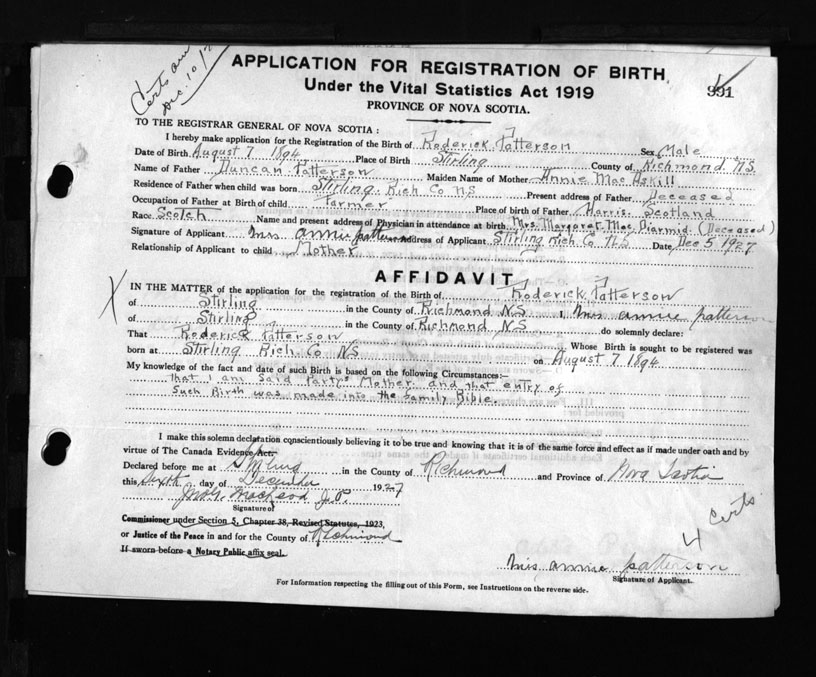 Certs
Dec. 10/2
APPLICATION FOR REGISTRATION OF BIRTH
Under the Vital Statistics Act 1919
991
PROVINCE OF NOVA SCOTIA.
TO THE REGISTRAR GENERAL OF NOVA SCOTIA :
I hereby make application for the Registration of the Birth of Roderick Patterson Sex Male
Date of Birth August 7 1894 Place of Birth Stirling County of Richmond N.S.
Name of Father Duncan Patterson Maiden Name of Mother Annie MacAskill
Residence of Father when child was born Stirling Rich Co NS Present address of Father Deceased
Occupation of Father at Birth of child Farmer Place of birth of Father Harris. Scotland
Race Scotch Name and present address of Physician in attendance at birth Mrs. Margaret Mac Diarmid (Deceased)
Signature of Applicant Mrs Annie Patterson Address of Applicant Stirling Rich Co N.S. Date Dec 5 1927
Relationship of Applicant to child Mother
AFFIDAVIT
X
IN THE MATTER of the application for the registration of the Birth of Roderick Patterson
of Stirling in the County of Richmond N.S. I, Mrs Annie Patterson
of Stirling in the County of Richmond N.S do solemnly declare:
That Roderick Patterson Whose Birth is sought to be registered was
born at Stirling Rich. Co NS. on August 7 1894
My knowledge of the fact and date of such Birth is based on the following Circumstances:—
That I am said Partys Mother. and that entry of
Such Birth was made into the family Bible.
I make this solemn declaration conscientiously believing it to be true and knowing that it is of the same force and effect as if made under oath and by
virtue of The Canada Evidence Act.
Declared before me at Stirling in the County of Richmond and Province of Nova Scotia
this Sixth day of December 1927
Jno. MacLeod J.P.
Signature of
Commissioner under Section 5, Chapter 38, Revised Statutes, 1923,
or Justice of the Peace in and for the County of Richmond
If sworn before a Notary Public affix seal.
4 Certs
Mrs Annie Patterson
Signature of Applicant.
For Information respecting the filling out of this Form, see Instructions on the reverse side.